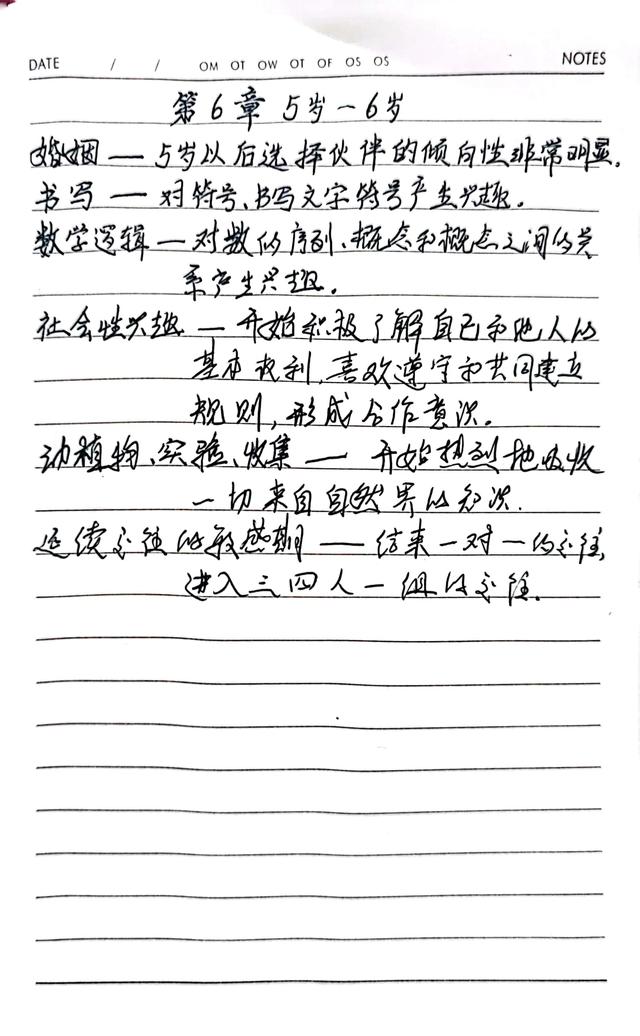 DATE / / OM OT OW OT OF OS OS NOTES
第6章 5岁-6岁
婚姻 — 5岁以后选择伙伴的倾向性非常明显。
书写 — 对符号、书写文字符号产生兴趣。
数学逻辑 — 对数的序列、概念和概念之间的关
系产生兴趣。
社会性兴趣 — 开始积极了解自己和他人的
基本权利,喜欢遵守和共同建立
规则,形成合作意识。
动植物、实验、收集 — 开始热烈地吸收
一切来自自然界的知识.
延续交往的敏感期 — 结束一对一的交往,
进入三四人一组的交往.